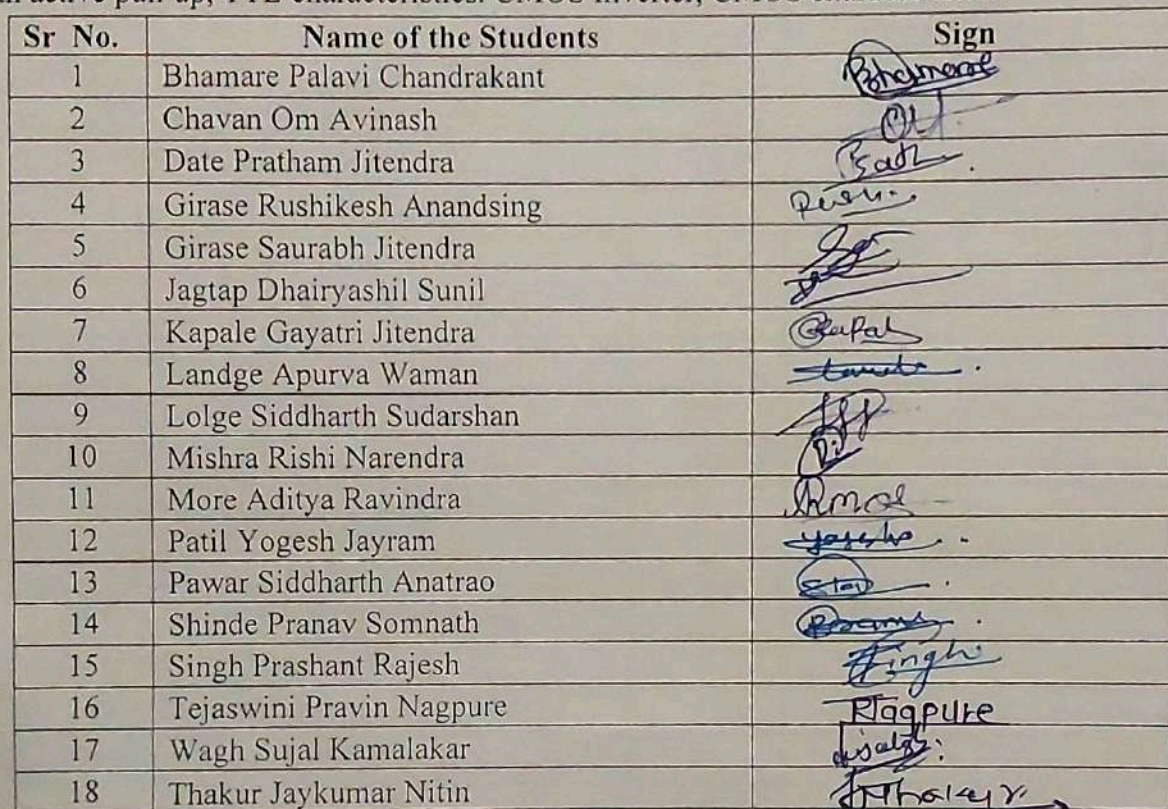 active pull-up, TTL characteristics. CMOS inverter, CMOS
Sr No. Name of the Students Sign
1 Bhamare Palavi Chandrakant Bhamare
2 Chavan Om Avinash
3 Date Pratham Jitendra
4 Girase Rushikesh Anandsing
5 Girase Saurabh Jitendra
6 Jagtap Dhairyashil Sunil
7 Kapale Gayatri Jitendra
8 Landge Apurva Waman
9 Lolge Siddharth Sudarshan
10 Mishra Rishi Narendra
11 More Aditya Ravindra
12 Patil Yogesh Jayram
13 Pawar Siddharth Anatrao
14 Shinde Pranav Somnath
15 Singh Prashant Rajesh
16 Tejaswini Pravin Nagpure
17 Wagh Sujal Kamalakar
18 Thakur Jaykumar Nitin